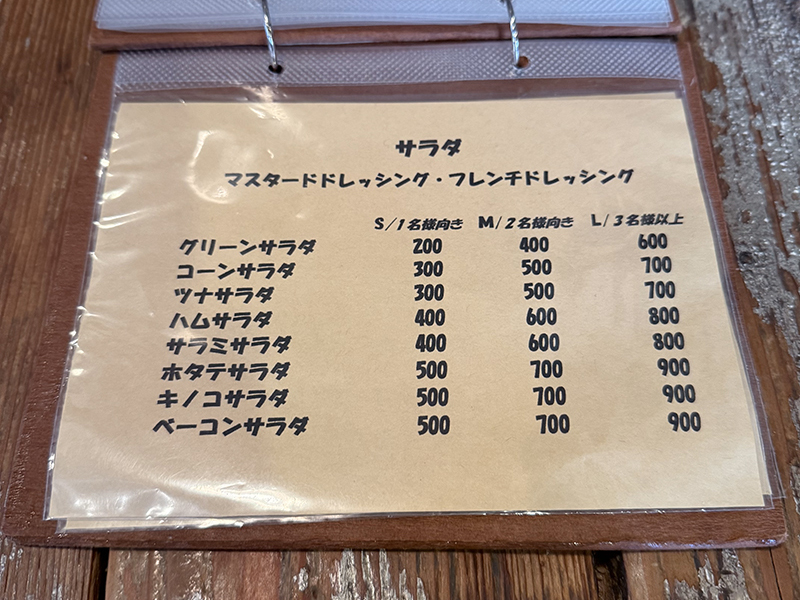 サラダ
マスタードドレッシング・フレンチドレッシング
S/1名様向き M/2名様向き L/3名様以上
グリーンサラダ 200 400 600
コーンサラダ 300 500 700
ツナサラダ 300 500 700
ハムサラダ 400 600 800
サラミサラダ 400 600 800
ホタテサラダ 500 700 900
キノコサラダ 500 700 900
ベーコンサラダ 500 700 900